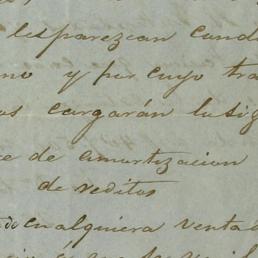 desparezcan cand
no y por cuyo tra
os cargarán la sig
re de amortizacion
de reditos
cualquiera venta d